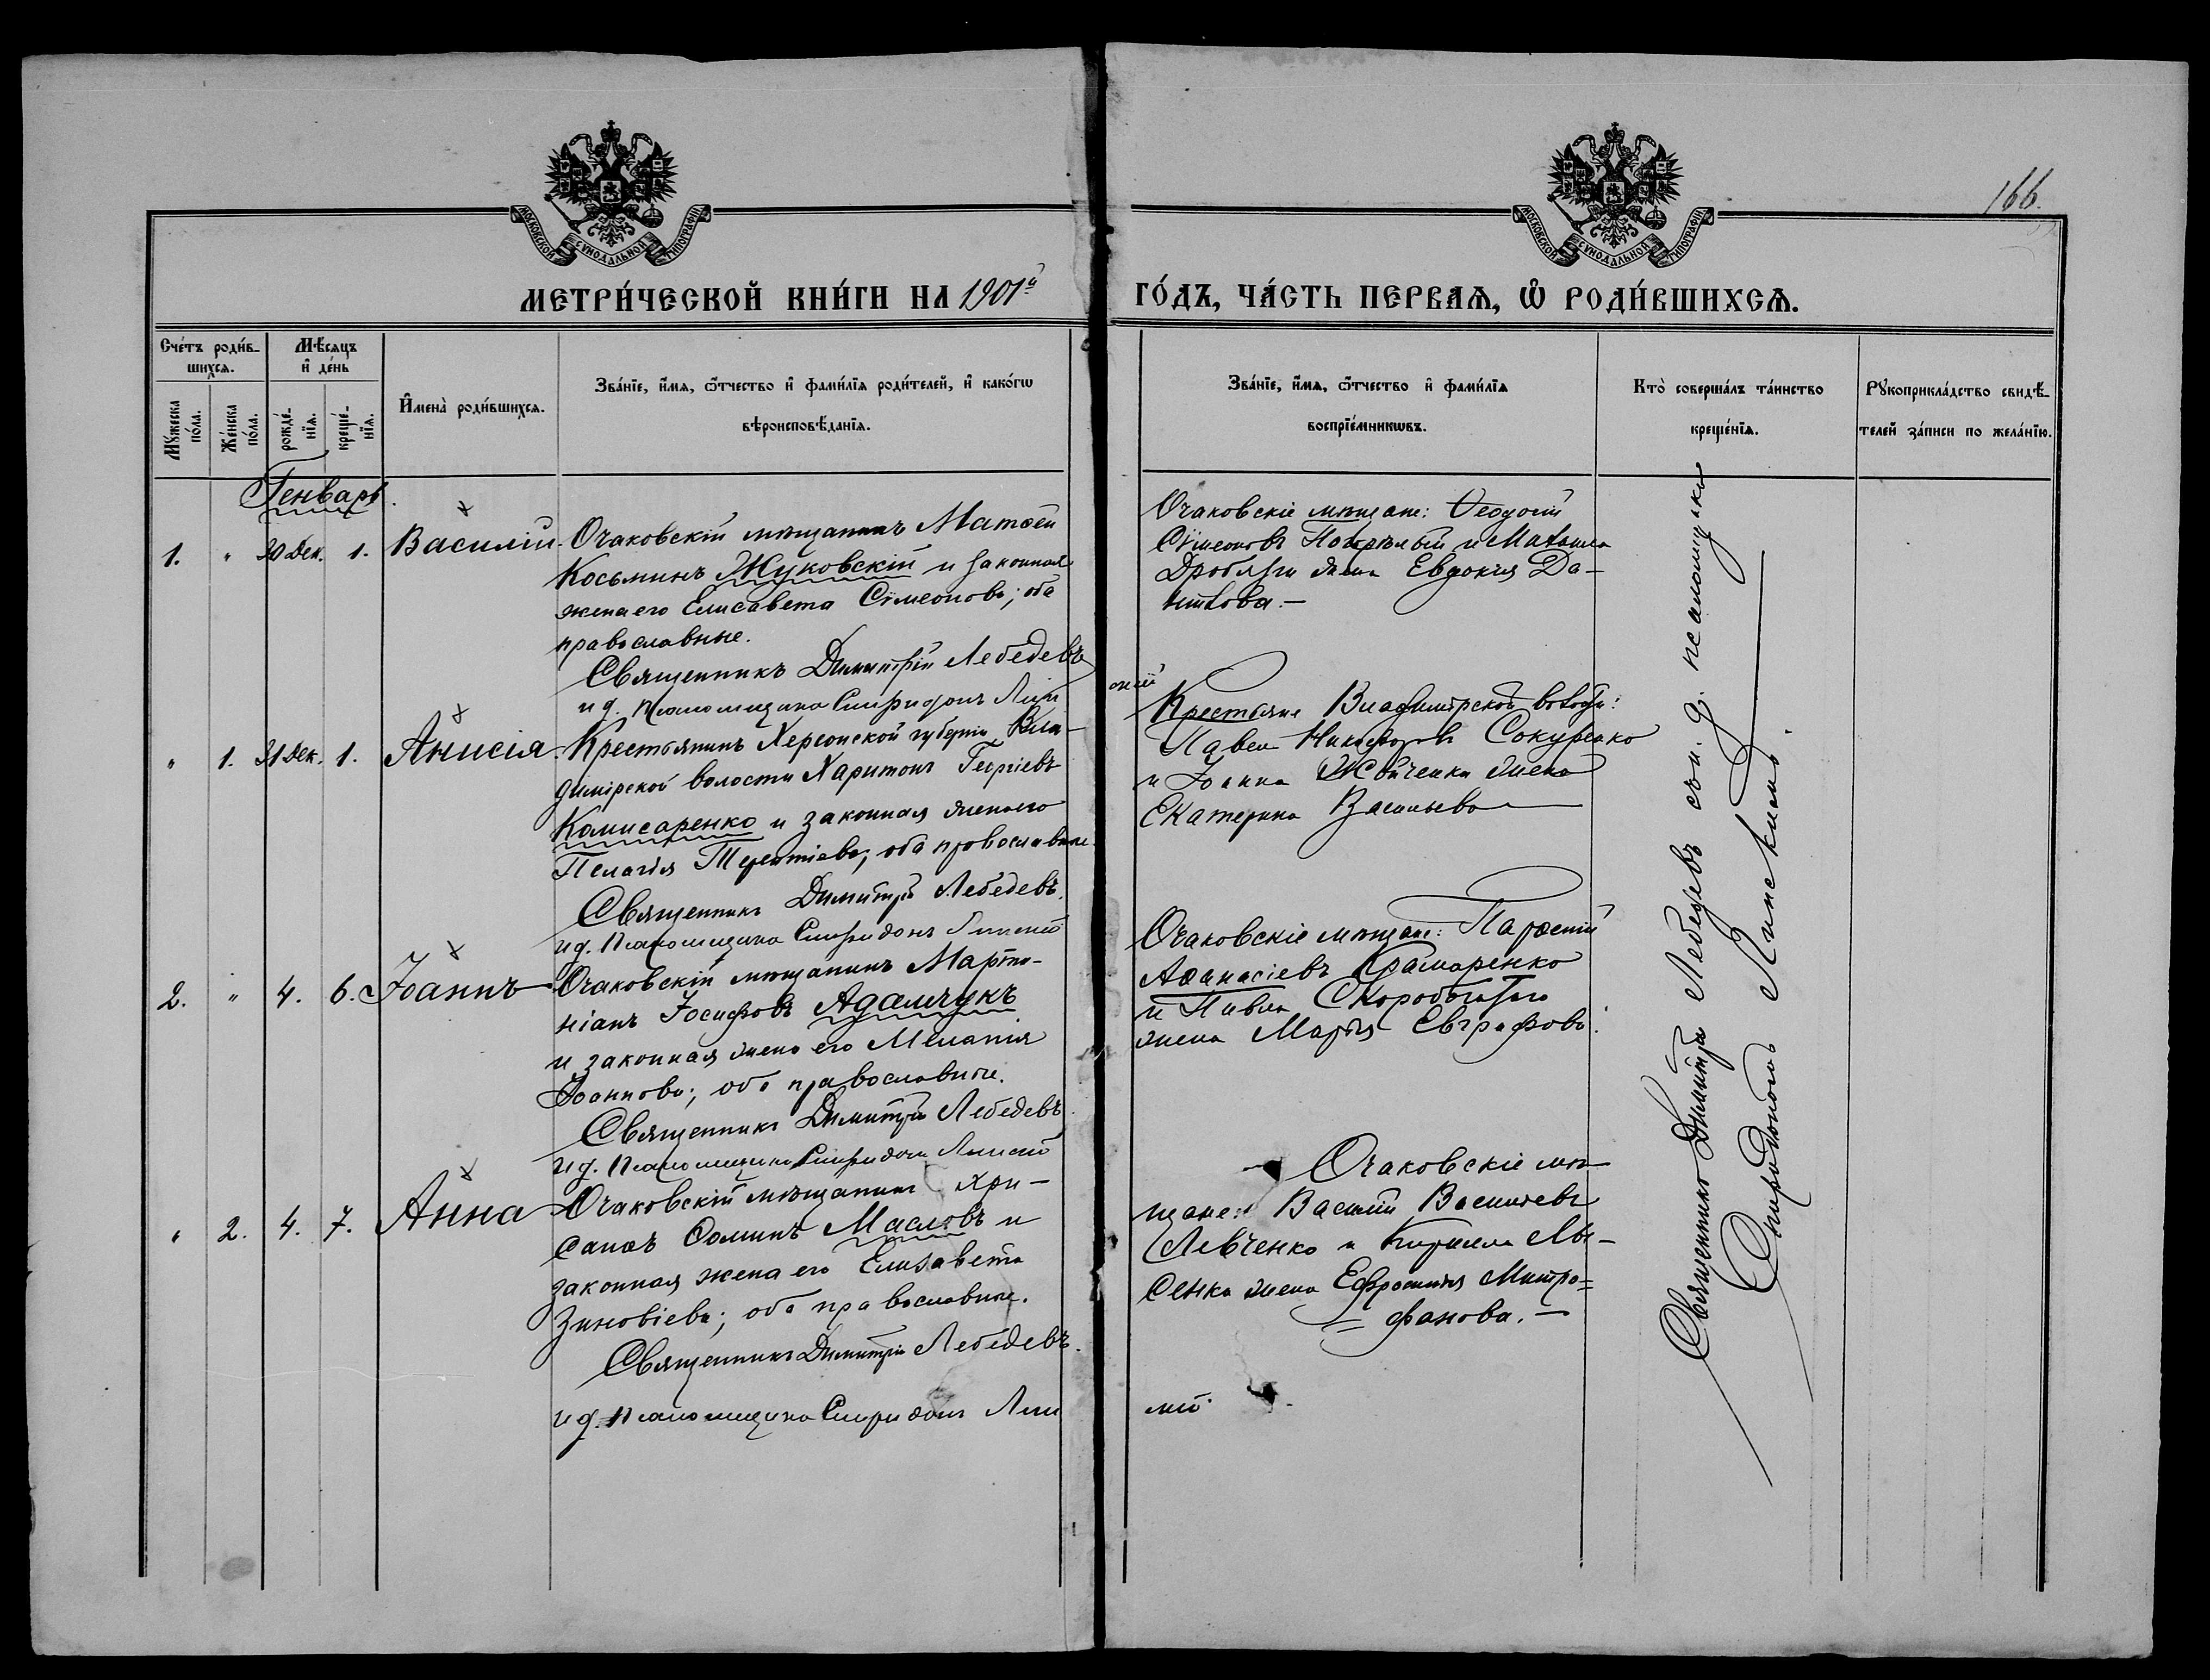 166.
МОСКОВСКОЙ СѴНОДАЛЬНОЙ ТИПОГРАФІИ
МОСКОВСКОЙ СѴНОДАЛЬНОЙ ТИПОГРАФІИ
МЕТРИ́ЧЕСКОЙ КНИ́ГИ НА 1901й
ГО́ДЪ, ЧА́СТЬ ПЕРВАѦ, Ѡ РОДИ́ВШИХСѦ.
Сче́тъ роди́в-
шихсѧ.
Мѣ́сѧцъ
и де́нь
Мꙋжеска по́ла.
Же́нска по́ла.
рожде́-нїѧ.
креще́-нїѧ.
Имена̀ роди́вшихсѧ.
Зва́нїе, и́мѧ, ѻ́тчество и фами́лїѧ роди́телей, и како́гѡ
вѣроисповѣ́данїѧ.
Зва́нїе, и́мѧ, ѻ́тчество и фами́лїѧ
воспрїе́мникѡвъ.
Кто̀ соверша́лъ та́инство
креще́нїѧ.
Рꙋкоприкла́дство свидѣ́-
телей за́писи по жела́нїю.
Генварь.
1. " 30 Дек. 1. Василій
Очаковскій мѣщанинъ Матѳей
Косьминъ Жуковскій и законная
жена его Елисавета Сѵмеонова; оба
православные.
Священникъ Димитрій Лебедевъ
и д. псаломщика Спиридонъ Лип
скій
Очаковскіе мѣщане: Ѳеодосій
Сѵмеоновъ и
Дробязги жена Евдокія Да-
нилова. —
" 1. 31 Дек. 1. Анисія
Крестьянинъ Херсонской губерніи Вла-
димірской волости Харитонъ Георгіевъ
Комисаренко и законная жена его
Пелагія Терентіева; оба православные.
Священникъ Димитрій Лебедевъ.
и д. псаломщика Спиридонъ Липскій
Крестьяне Владимірской волости:
Павелъ Никифоровъ Сокуренко
и Іоанна жена
Екатерина Васильева
2. " 4. 6. Іоаннъ
Очаковскій мѣщанинъ Марти-
ніанъ Іосифовъ Адамчукъ
и законная жена его Меланія
Іоаннова; оба православные.
Священникъ Димитрій Лебедевъ.
и д. псаломщика Спиридонъ Липскій
Очаковскіе мѣщане: Парѳеній
Аѳанасіевъ Крамаренко
и Павла Скоробогатаго
жена Марія Евграфова.
" 2. 4. 7. Анна
Очаковскій мѣщанинъ Хри-
санѳъ Ѳоминъ Масловъ и
законная жена его Елизавета
Зиновіева; оба православные.
Священникъ Димитрій Лебедевъ.
и д. псаломщика Спиридонъ Лип
скій.
Очаковскіе мѣ-
щане: Василій Васильевъ
Левченко и Кирилла Лы-
сенка жена Ефросинія Митро=
фанова. —
Священникъ Димитрій Лебедевъ съ и. д. псаломщика
Спиридономъ Липскимъ.